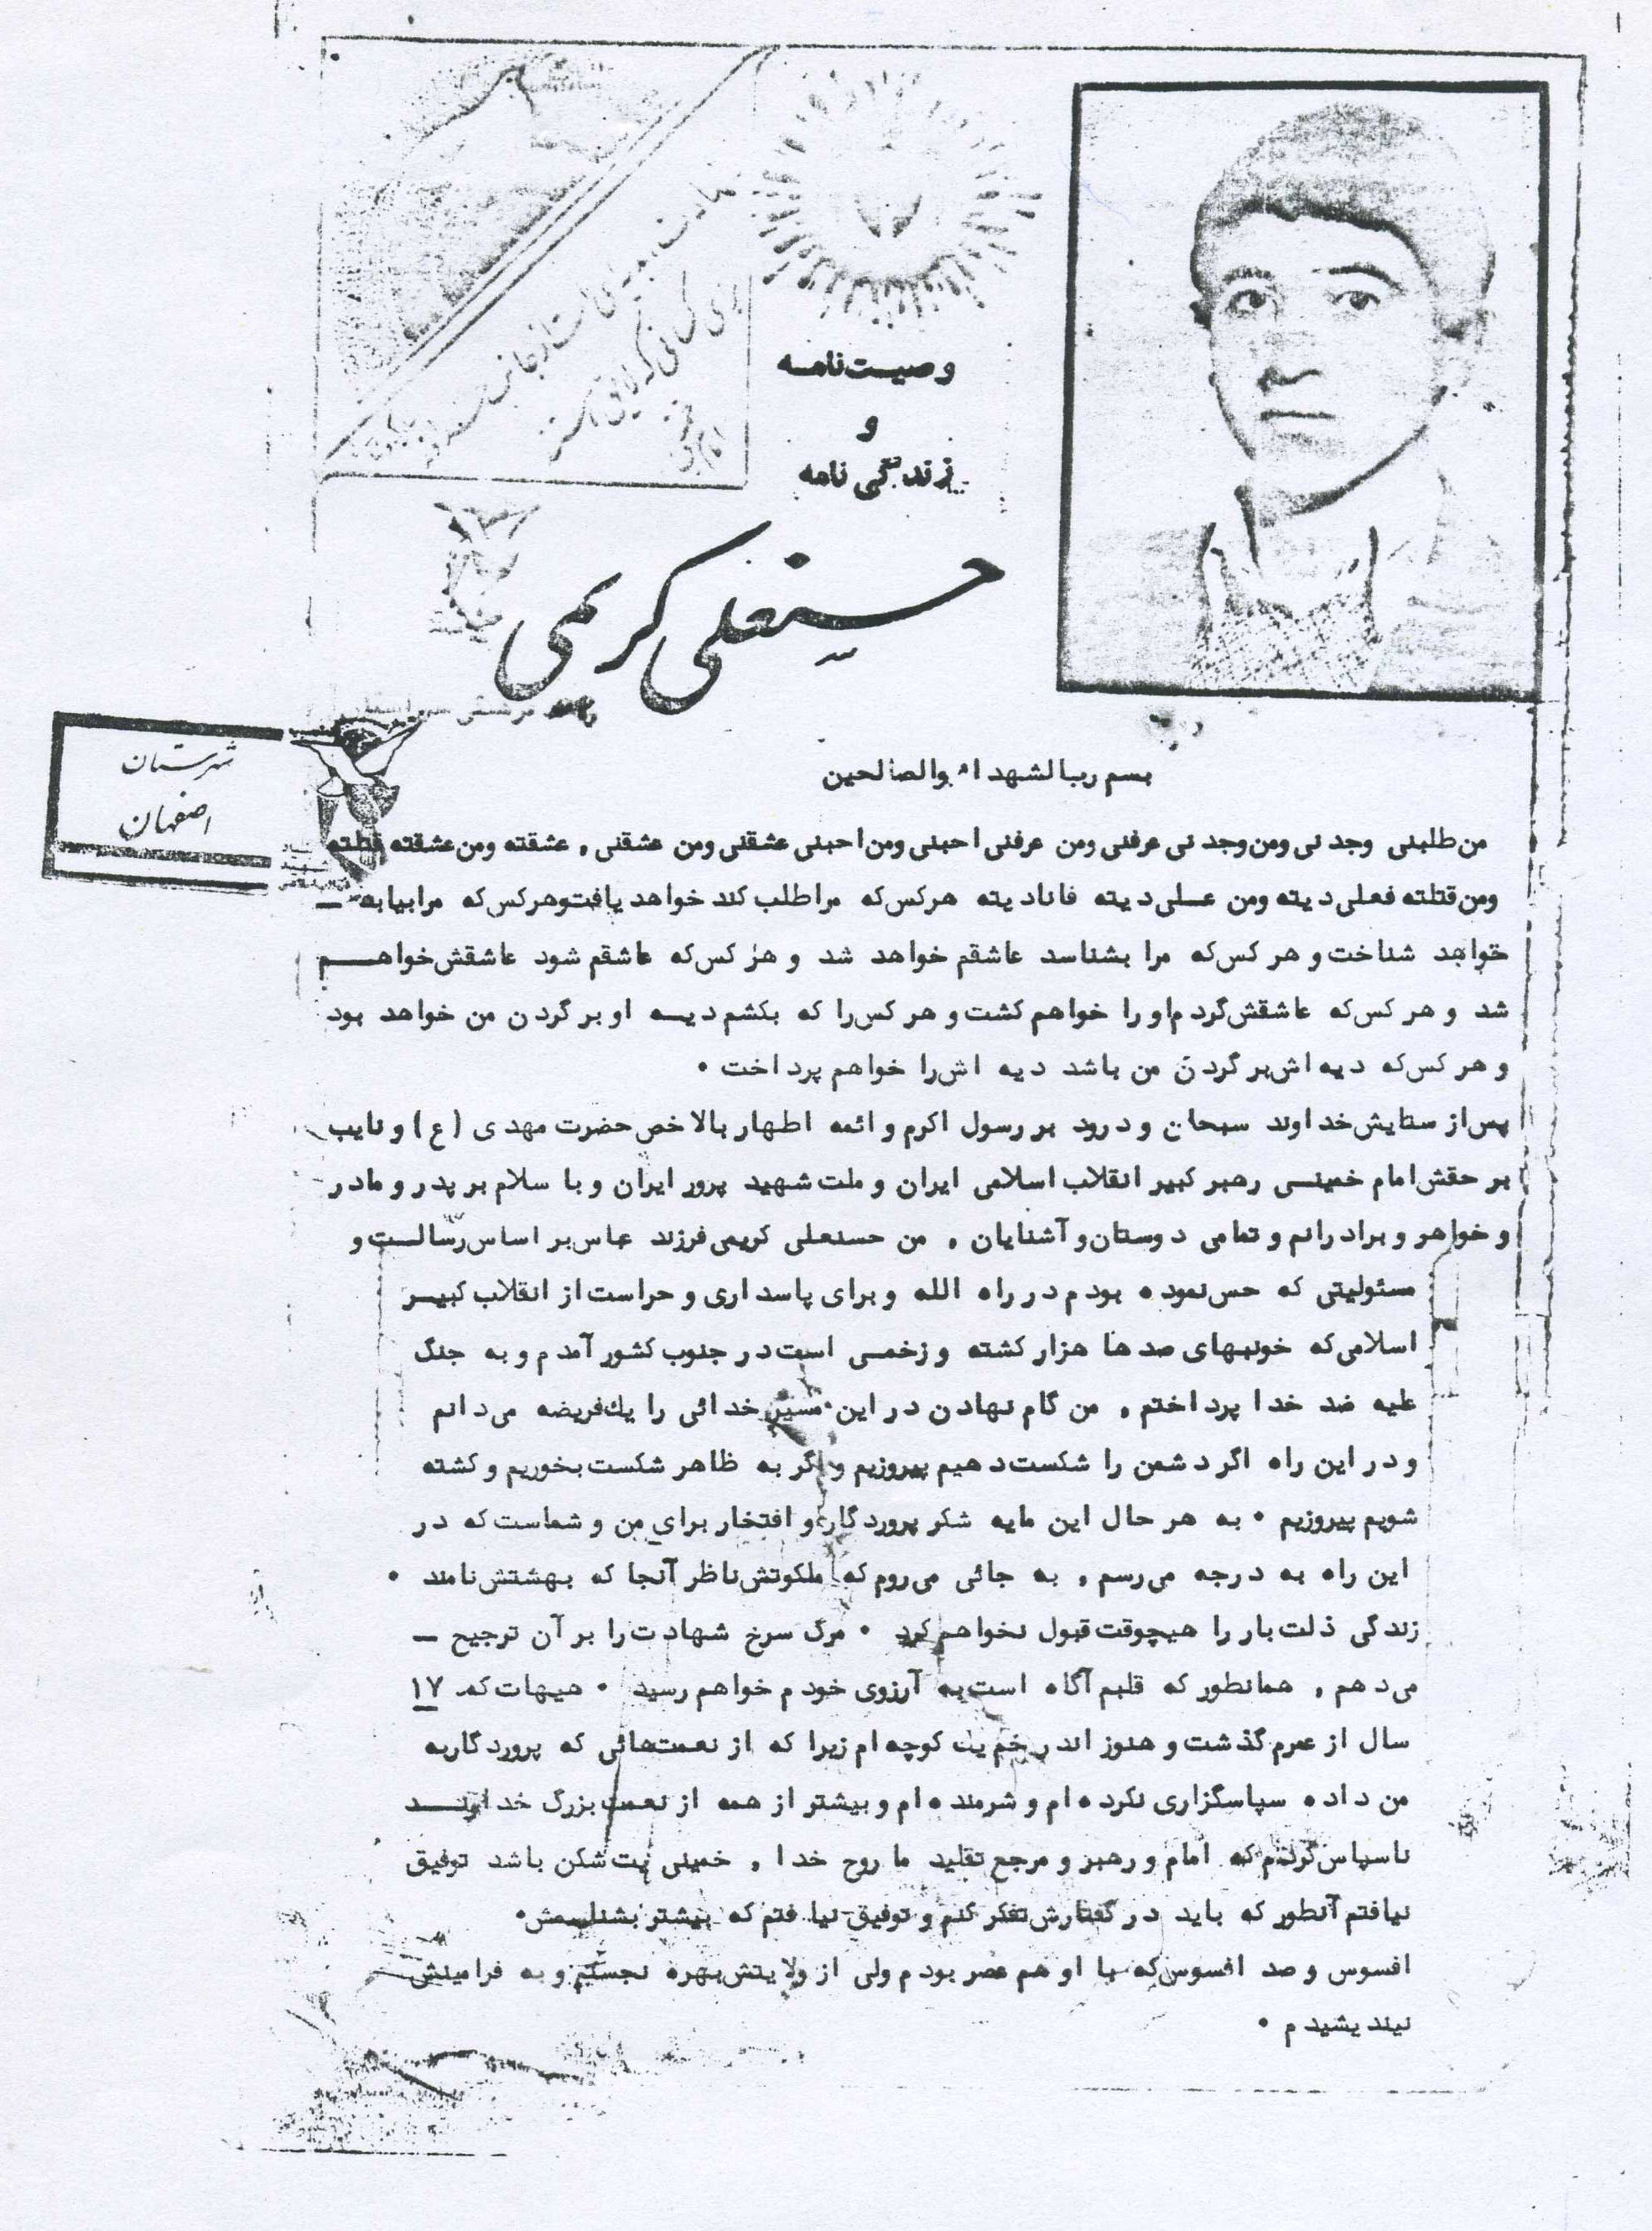 وصیت‌نامه
و
زندگی نامه
حسنعلی کریمی
شهرستان
اصفهان
امام خمینی
بسم رب‌الشهداء والصالحین
من طلبنی وجدنی ومن وجدنی عرفنی ومن عرفنی احبنی ومن احبنی عشقنی ومن عشقنی , عشقته ومن عشقته قتلته
ومن قتلته فعلی دیته ومن علی دیته فانادیته هرکس‌که مراطلب کند خواهد یافت‌وهرکس‌که مرابیابد ــ
خواهد شناخت و هر کس‌که مرا بشناسد عاشقم خواهد شد و هر کس‌که عاشقم شود عاشقش‌خواهم
شد و هر کس‌که عاشقش‌گردم‌او را خواهم کشت و هر کس‌را که بکشم دیه او بر گردن من خواهد بود
و هر کس‌که دیه اش‌بر گردن من باشد دیه اش‌را خواهم پرداخت .
پس‌از ستایش‌خداوند سبحان و درود بر رسول اکرم و ائمه اطهار بالاخص حضرت مهدی (ع) و نایب
بر حقش‌امام خمینی رهبر کبیر انقلاب اسلامی ایران و ملت شهید پرور ایران و با سلام بر پدر و مادر
و خواهر و برادرانم و تمامی دوستان‌و آشنایان , من حسنعلی کریمی فرزند عباس‌بر اساس‌رسالت و
مسئولیتی که حس‌نموده بودم در راه الله و برای پاسداری و حراست از انقلاب کبیر
اسلامی‌که خونبهای صدها هزار کشته و زخمی است‌در جنوب کشور آمدم و به جنگ
علیه ضد خدا پرداختم , من گام نهادن در این مسیر خدائی را یك‌فریضه می‌دانم
و در این راه اگر دشمن را شکست‌دهیم پیروزیم و اگر به ظاهر شکست بخوریم و کشته
شویم پیروزیم . به هر حال این مایه شکر پروردگار و افتخار برای من و شماست که در
این راه به درجه می‌رسم , به جائی می‌روم که ملکوتش‌ناظر آنجا که بهشتش‌نامند .
زندگی ذلت بار را هیچوقت قبول نخواهم کرد . مرگ سرخ شهادت را بر آن ترجیح ــ
می‌دهم , همانطور که قلبم آگاه است‌به آرزوی خودم خواهم رسید . هیهات که ۱۷
سال از عمرم گذشت و هنوز اندر خم یك کوچه ام زیرا که از نعمت‌هائی که پروردگاربه
من داده سپاسگزاری نکرده ام و شرمنده ام و بیشتر از همه از نعمت بزرگ خداوند
ناسپاس‌گردم که امام و رهبر و مرجع تقلید ما روح خدا , خمینی بت‌شکن باشد توفیق
نیافتم آنطور که باید در گفتارش‌تفکر کنم و توفیق نیافتم که بیشتر بشناسمش.
افسوس و صد افسوس‌که با او هم عصر بودم ولی از ولایتش‌بهره نجستم و به فرامینش
نیندیشیدم .